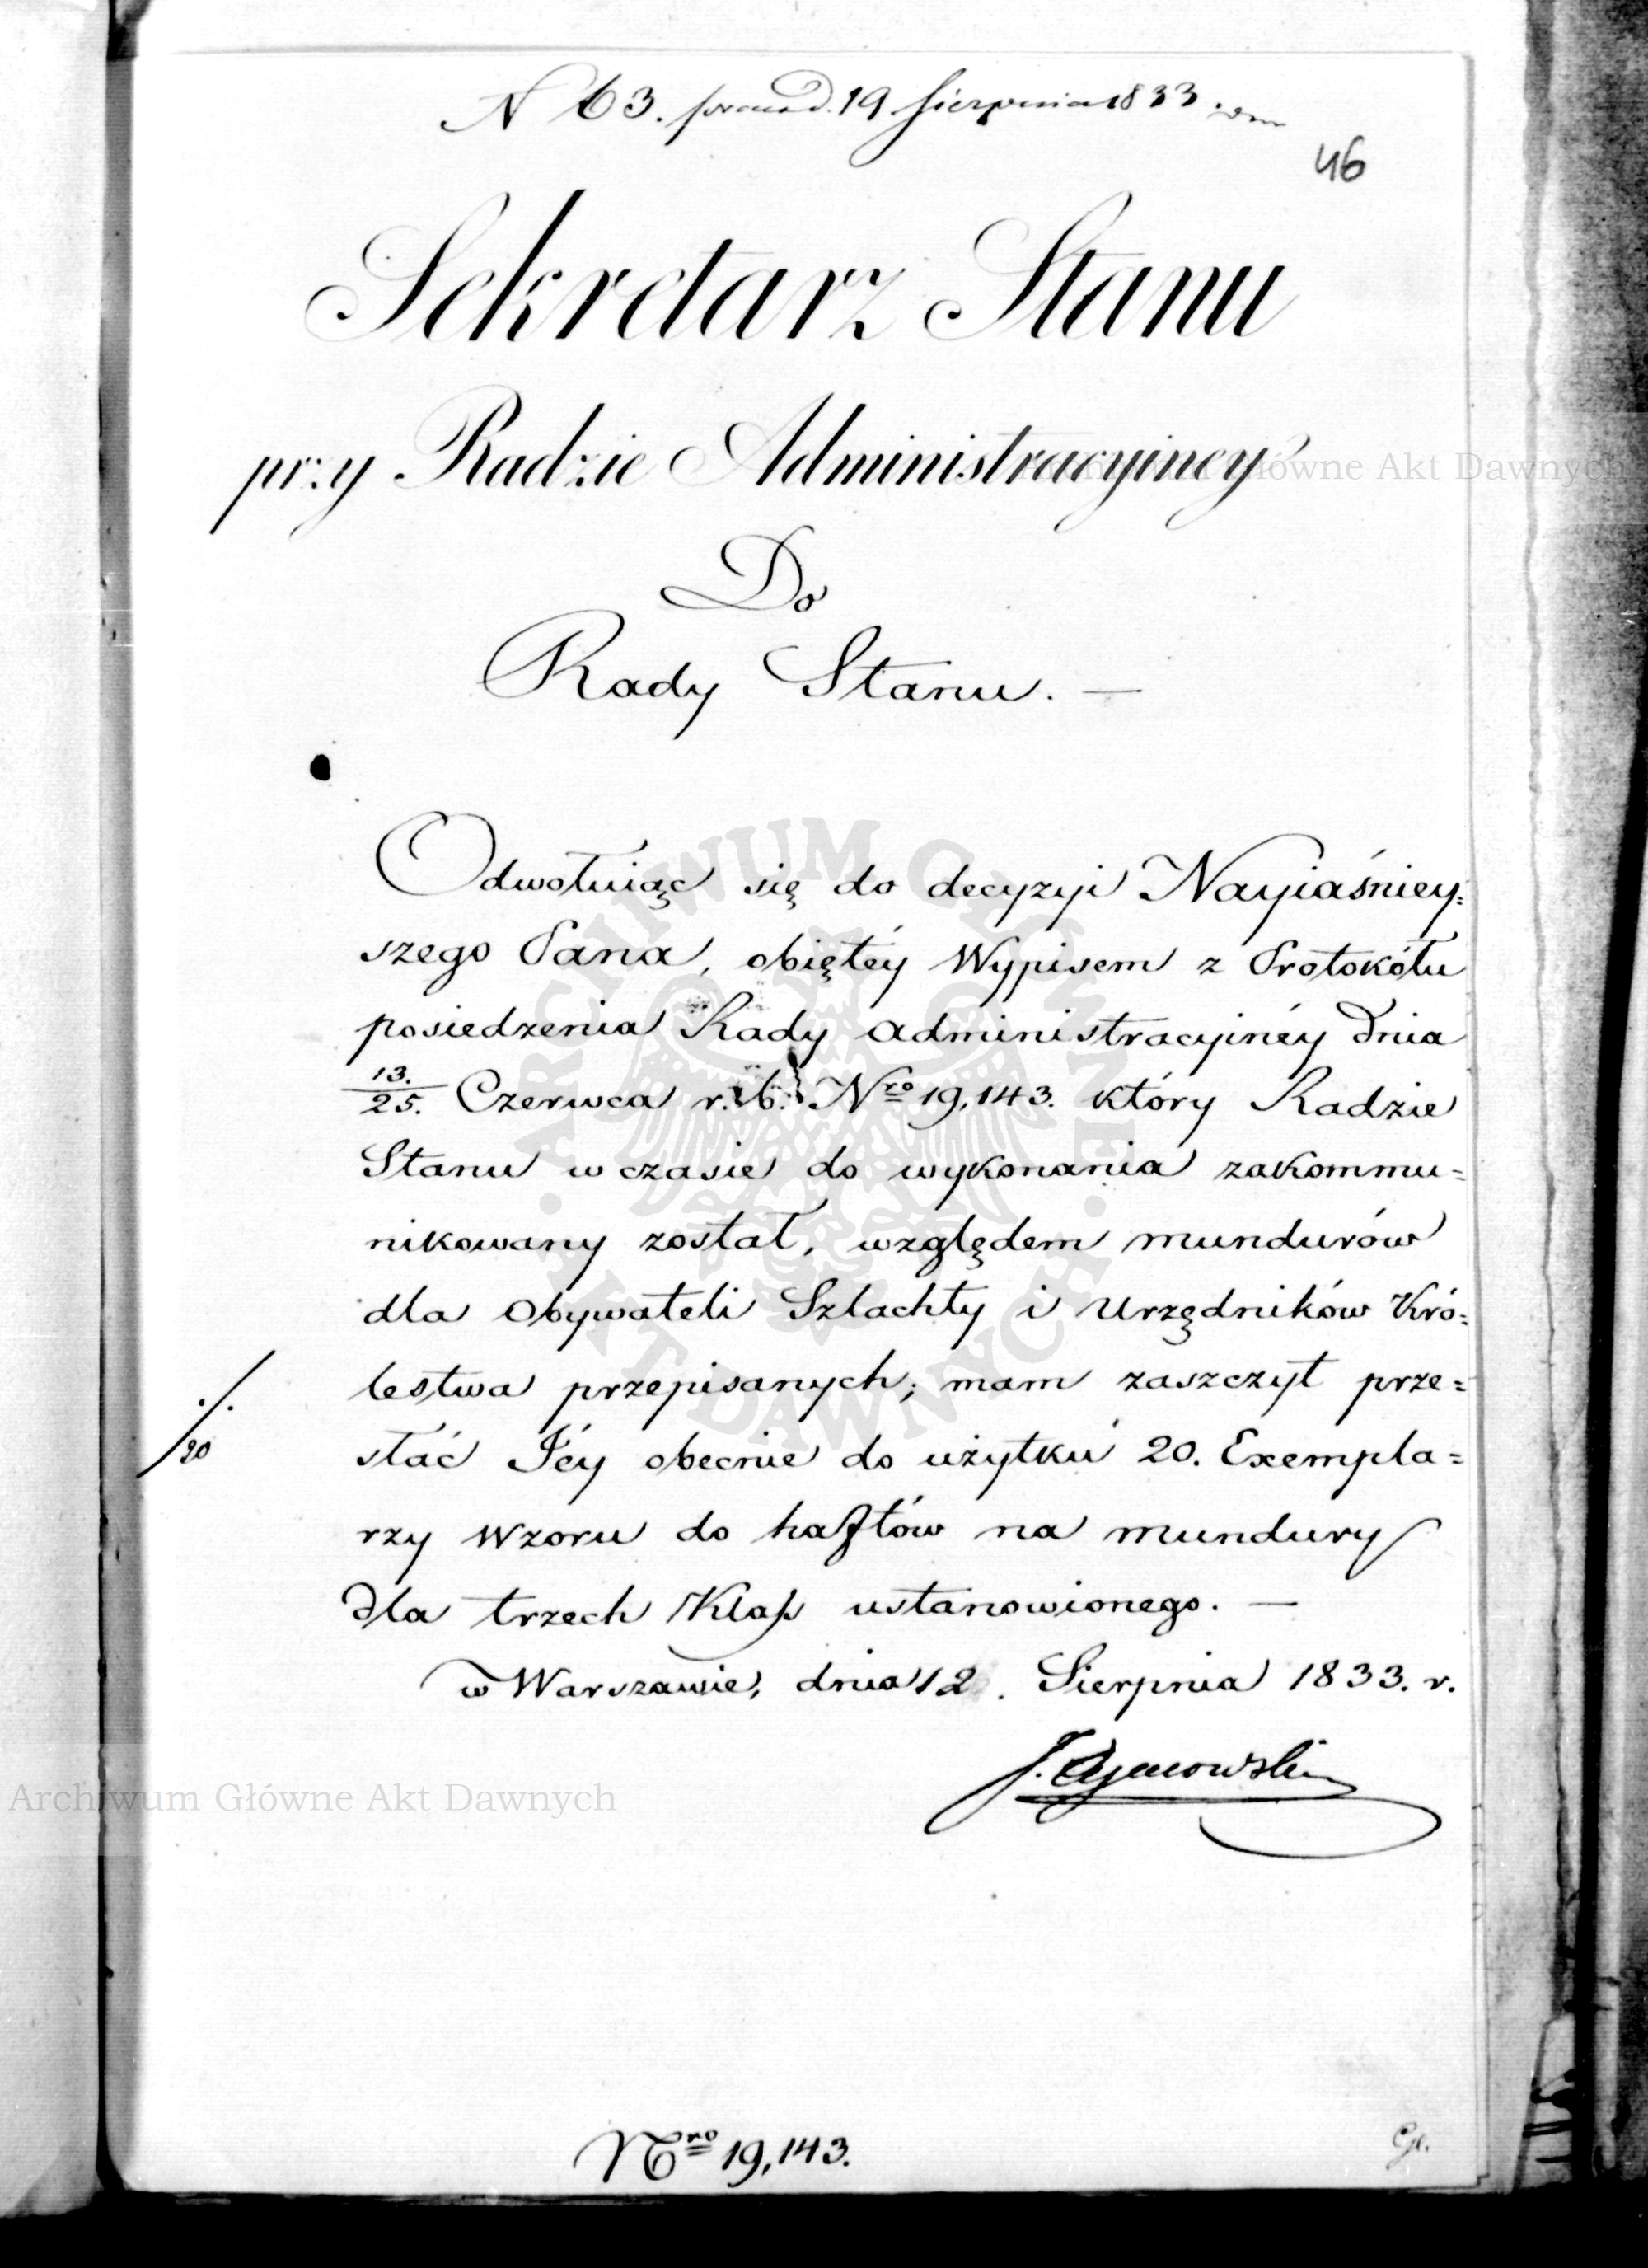 N 63. 19 Sierpnia 1833.
46
Sekretarz Stanu
przy Radzie Administracyiney
Do
Rady Stanu. —
Odwołuiąc się do decyzyi Nayiaśniey=
szego Pana, obiętéy Wypisem z Protokółu
posiedzenia Rady Administracyinéy dnia
13./25. Czerwca r. b. Nro 19,143. który Radzie
Stanu w czasie do wykonania zakommu=
nikowany został, względem mundurów
dla Obywateli Szlachty i Urzędników Kró=
lestwa przepisanych; mam zaszczyt prze=
./. 20
słać Iéy obecnie do użytku 20. Exempla=
rzy Wzoru do haftów na mundury
dla trzech Klass ustanowionego. —
w Warszawie, dnia 12. Sierpnia 1833. r.
J. Tymowski
Nro 19,143.
Archiwum Główne Akt Dawnych
Archiwum Główne Akt Dawnych
ARCHIWUM GŁÓWNE · AKT DAWNYCH ·